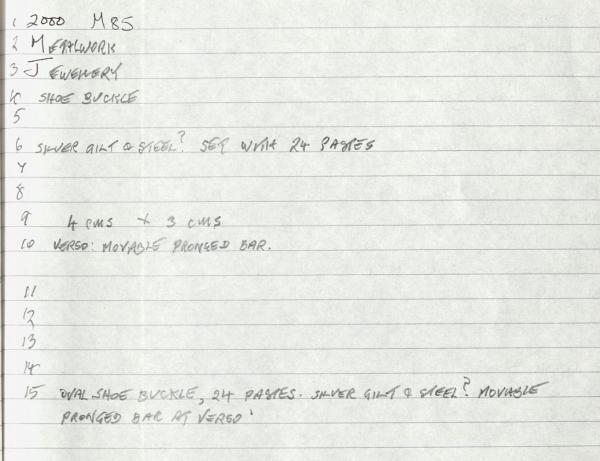 1 2000 M85
2 METALWORK
3 JEWELLERY
4 SHOE BUCKLE
5
6 SILVER GILT & STEEL? SET WITH 24 PASTES
7
8
9 4 CMS X 3 CMS
10 VERSO: MOVABLE PRONGED BAR.
11
12
13
14
15 OVAL SHOE BUCKLE, 24 PASTES. SILVER GILT & STEEL? MOVABLE
PRONGED BAR AT VERSO.